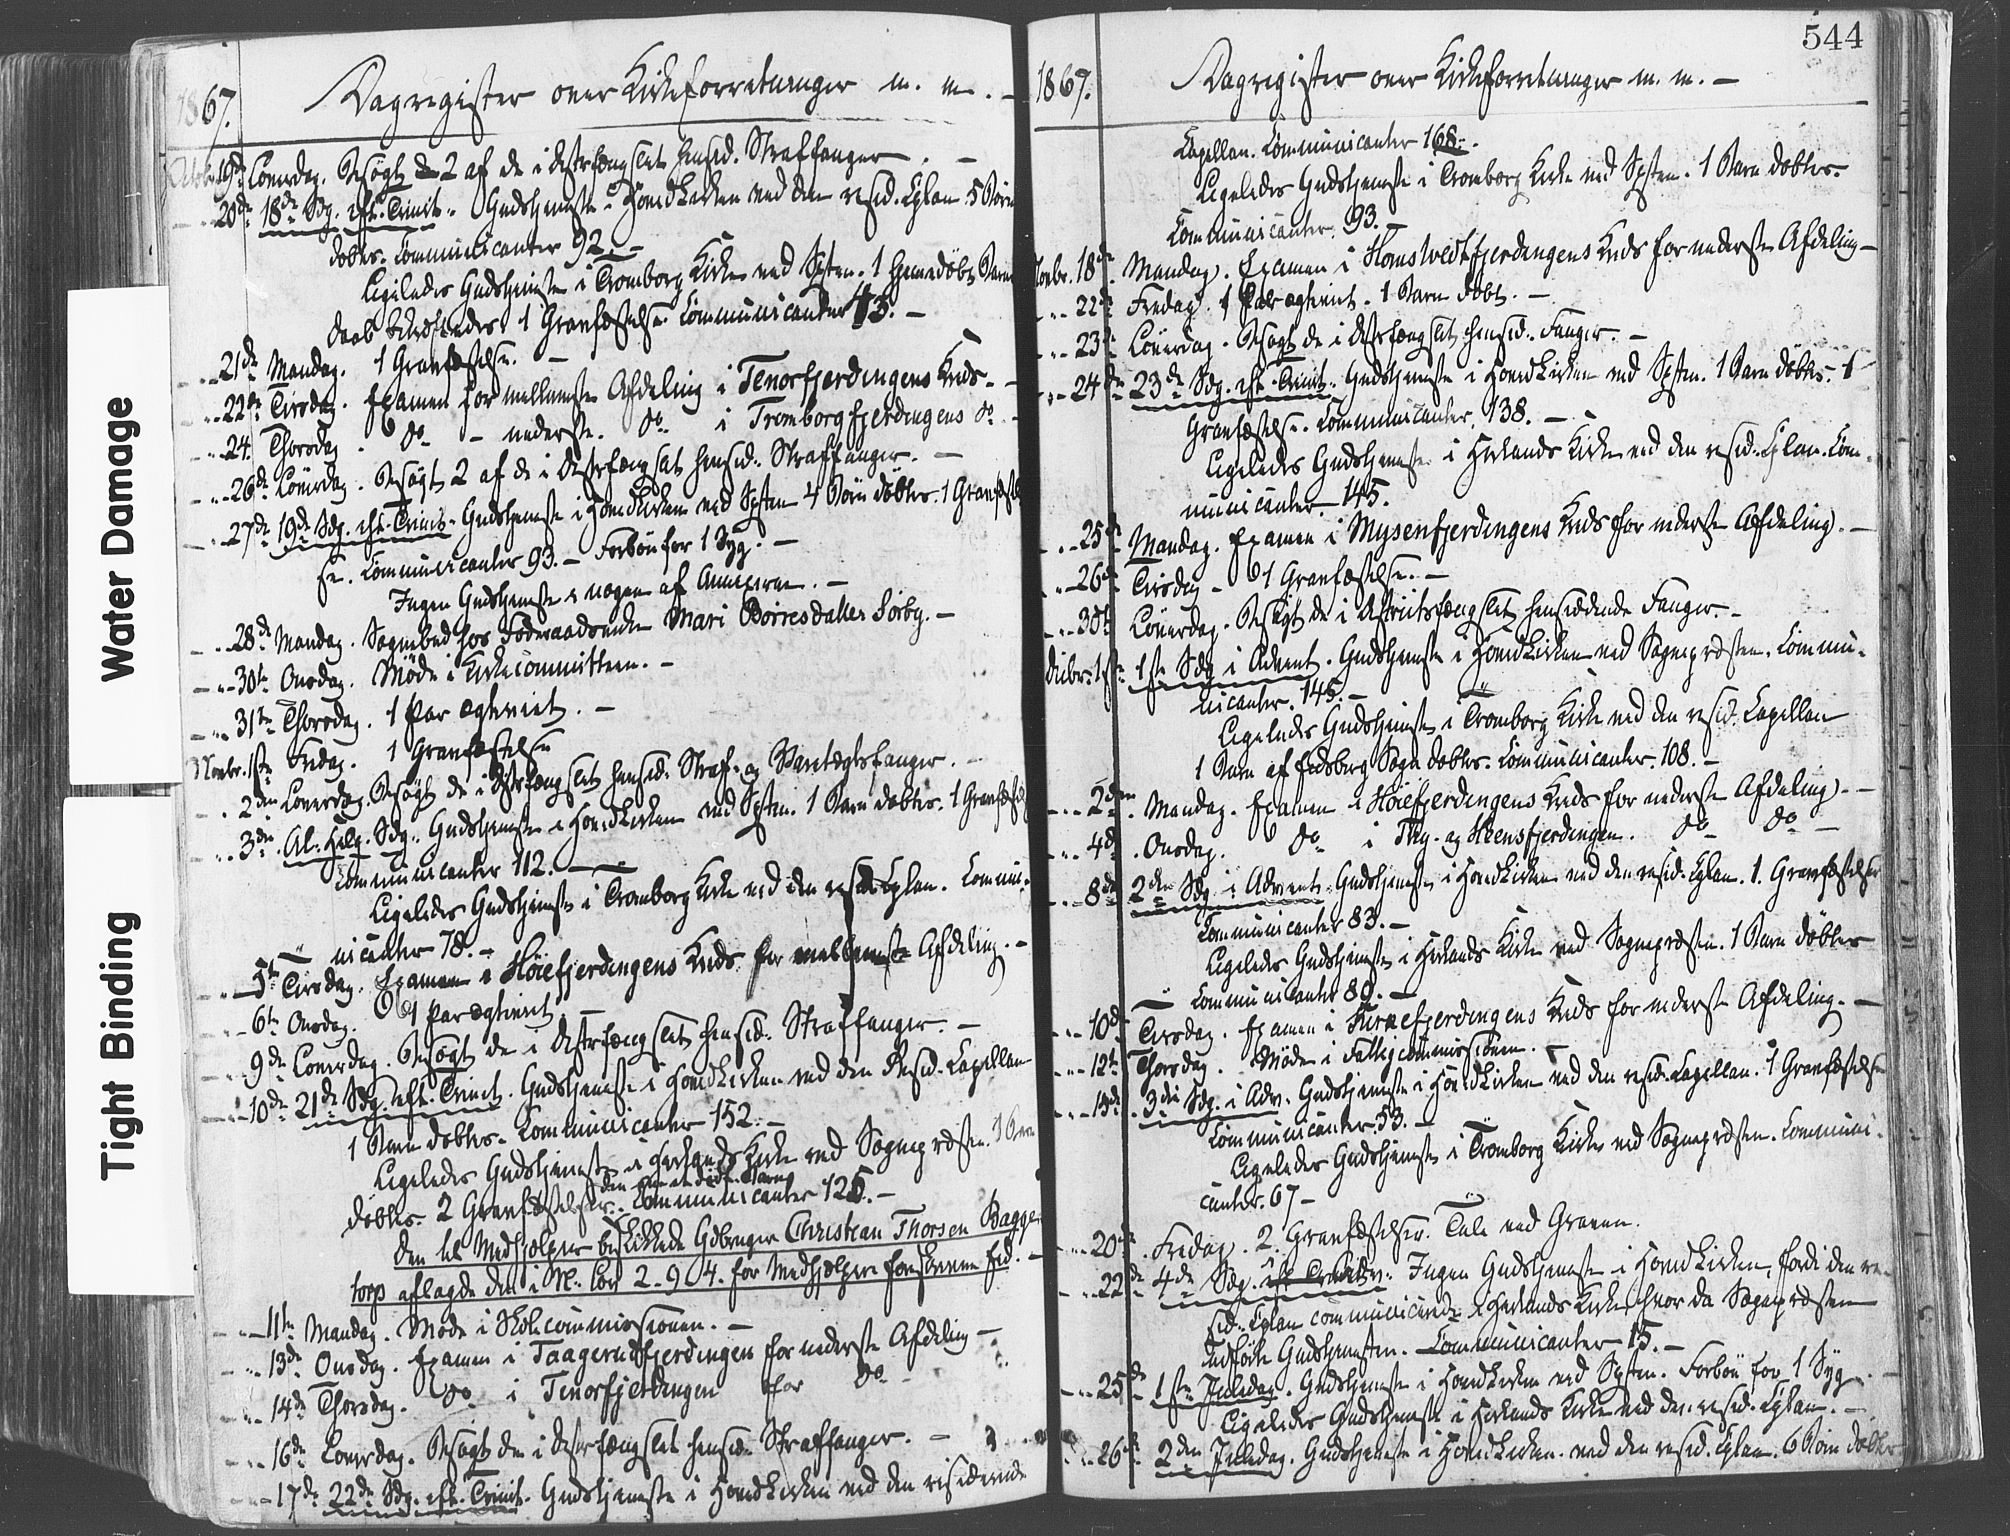 Water Damage
Tight Binding
1867.
Dagregister over Kirkeforretninger m. m. –
Octobr. 19de Löverdag. Besögt 2 af de i Distrfængslet hensid. Straffanger. –
20de 18de Sdg. eft. Trinit. Gudstjeneste i Hovedkirken ved den resid. Cplan. 5 Börn
döbtes. Communicanter 92. –
Ligeledes Gudstjeneste i Tromborg Kirke ved Spsten. 1 hjemmedöbt Barns
Daab bekræftedes. 1 Gravfæstelse. Communicanter 43. –
21de Mandag. 1 Gravfæstelse. –
22de Tirsdag. Examen for mellemste Afdeling i Tenorfjerdingens Kreds. –
24. Thorsdag. do – nederste. do. i Tromborgfjerdingens do. –
26de Löverdag. Besögt 2 af de i Distrfængslet hensid. Straffanger. –
27de 19de Sdg. eft. Trinit. Gudstjeneste i Hovedkirken ved Spsten 4 Börn döbtes. 1 Gravfæstel-
se. Communicanter 93. – Forbön for 1 Syg. –
Ingen Gudstjeneste i nogen af Annexerne. –
28de Mandag. Sognebud hos Föderaadsenke Mari Börresdatter Sörby. –
30te Onsdag. Möde i Kirkecommitteen. –
31te Thorsdag. 1 Par ægteviet. –
Novbr. 1ste Fredag. 1 Gravfæstelse
2den Löverdag. Besögt de i Distrfængslet hensid. Straf- og Varetægtsfanger. –
3die Al. Helg. Sdg. Gudstjeneste i Hovedkirken ved Spsten. 1 Barn döbtes. 1 Gravfæstelse
Communicanter 112. –
Ligeledes Gudstjeneste i Tromborg Kirke ved den resid. Cplan. Commu-
nicanter 78. –
5te Tirsdag. Examen i Höiefjerdingens Kreds for mellemste Afdeling. –
6te Onsdag. 1 Par ægteviet
9de Löverdag. Besögt de i Distrfængslet hensid. Straffanger. –
10de 21de Sdg. eft. Trinit. Gudstjeneste i Hovedkirken ved den Resid. Capellan
1 Barn döbtes. Communicanter 152. –
Ligeledes Gudstjeneste i Herlands Kirke ved Sognepræsten. 1 Barn
döbtes. 2 Gravfæstelser. Communicanter 125. –
Den til Medhjælper beskikkede Gdbruger Christian Thorsen Bagger
torp aflagde den i N. Lov 2-9-4. for Medhjælpere foreskrevne Ed. –
11te Mandag. Möde i Skolecommissionen. –
13de Onsdag. Examen i Taagerudfjerdingen for nederste Afdeling –
14de Thorsdag. do i Tenorfjerdingen for do –
16de Löverdag. Besögt de i Distrfængslet hensid. Straffanger. –
17de 22de Sdg. eft. Trinit. Gudstjeneste i Hovedkirken ved den residerende
544
1867.
Dagregister over Kirkeforretninger m. m. –
Capellan. Communicanter 168. –
Ligeledes Gudstjeneste i Tromborg Kirke ved Spsten. 1 Barn döbtes.
Communicanter 93. –
Novbr. 18de Mandag. Examen i Homstvedtfjerdingens Kreds for nederste Afdeling –
22de Fredag. 1 Par ægteviet. 1 Barn döbt. –
23de Löverdag. Besögt de i Distrfængslet hensid. Fanger. –
24de 23de Sdg. eft. Trinit. Gudstjeneste i Hovedkirken ved Spsten. 1 Barn döbtes. 1
Gravfæstelse. Communicanter 138. –
Ligeledes Gudstjeneste i Herlands Kirke ved den resid. Cplan. Com-
municanter 145.
25de Mandag. Examen i Mysenfjerdingens Kreds for nederste Afdeling. –
26de Tirsdag – 1 Gravfæstelse. –
30te Löverdag. Besögt de i Distriktsfængslet hensiddende Fanger. –
Decbr. 1ste 1ste Sdg i Advent. Gudstjeneste i Hovedkirken ved Sognepræsten. Commu-
nicanter. 145. –
Ligeledes Gudstjeneste i Tromborg Kirke ved den resid. Capellan
1 Barn af Eidsberg Sogn döbtes. Communicanter. 108. –
2den Mandag. Examen i Höiefjerdingens Kreds for nederste Afdeling. –
4de Onsdag. do i Thy- og Heensfjerdingen. do do –
8de 2den Sdg. i Advent. Gudstjeneste i Hovedkirken ved den resid. Cplan. 1. Gravfæstelse
Communicanter 83. –
Ligeledes Gudstjeneste i Herlands Kirke ved Sognepræsten. 1 Barn döbtes
Communicanter 80. –
10de Tirsdag. Examen i Kirkefjerdingens Kreds for nederste Afdeling. –
12te Thorsdag. Möde i Fattigcommissionen. –
15de 3die Sdg. i Adv. Gudstjeneste i Hovedkirken ved den resid. Capellan. 1 Gravfæstelse
Communicanter 53. –
Ligeledes Gudstjeneste i Tromborg Kirke ved Sognepræsten. Communi-
canter. 67 –
20de Fredag. 2. Gravfæstelser. Tale ved Graven.
22de 4de Sdg. i Adv. Ingen Gudstjeneste i Hovedkirken, fordi den re-
sid. Cplan communicerede i Herlands Kirke, hvor da Sognepræsten
udförte Gudstjenesten. Communicanter 15. –
25de 1ste Juledag. Gudstjeneste i Hovedkirken ved Spsten. Forbön for 1 Syg. –
Ligeledes Gudstjeneste i Herlands Kirke ved den resid. Cplan. –
26de 2den Juledag. Gudstjeneste i Hovedkirken ved den resid. Cplan. 6 Börn döbtes